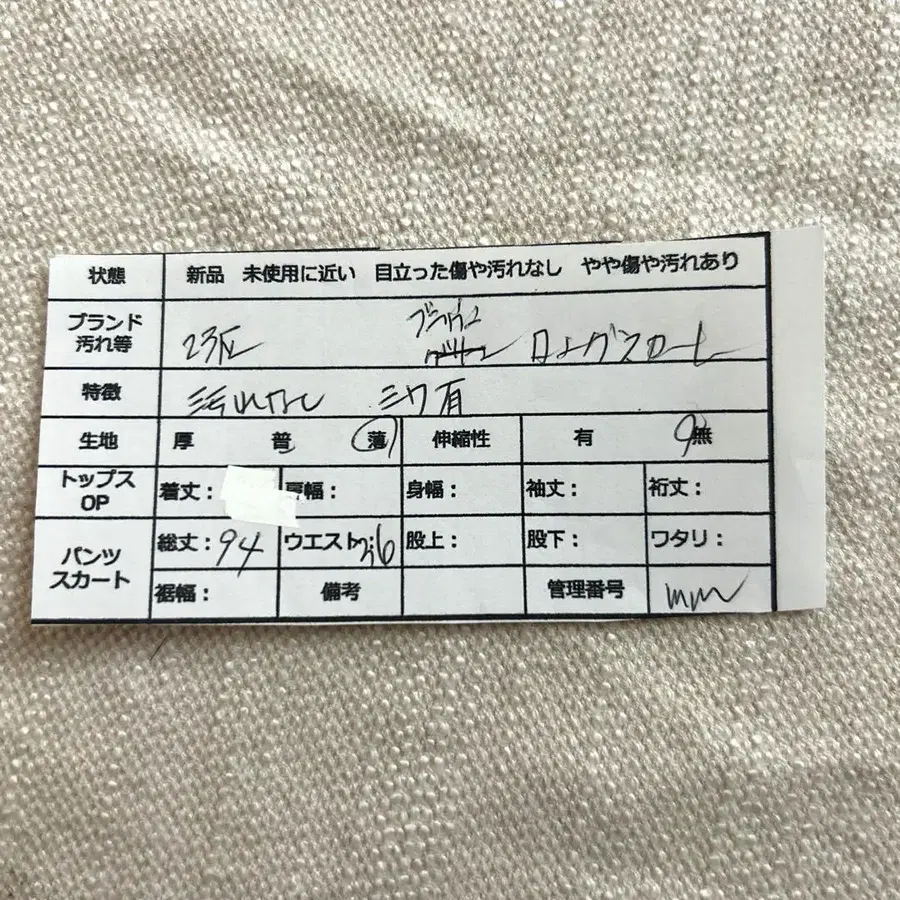 状態 新品 未使用に近い 目立った傷や汚れなし やや傷や汚れあり
ブランド
汚れ等 23区 ロングスカート
特徴 汚れなし シワ有
生地 厚 普 薄 伸縮性 有 無
トップス
OP 着丈： 肩幅： 身幅： 袖丈： 裄丈：
パンツ
スカート 総丈：94 ウエスト：36 股上： 股下： ワタリ：
裾幅： 備考 管理番号 mm